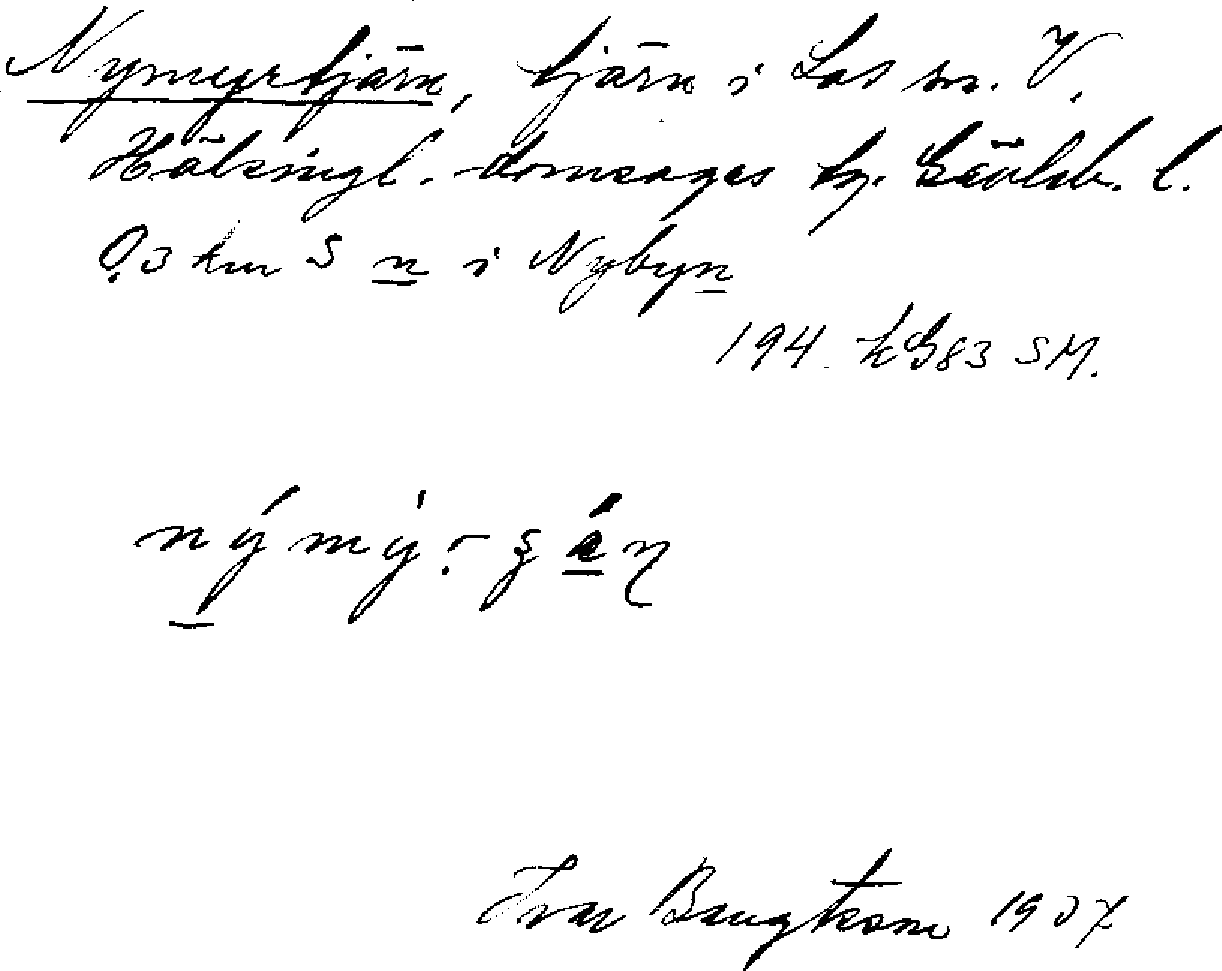 Nymyrtjärn, tjärn i Los sn. V.
Hälsingl. domsagas tg. Gävleb. l.
0,3 km S n i Nybyn
194. kG83 SM.
nýmý:-
Ivar Bengtsson 1937